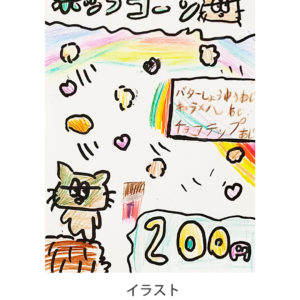 ポップコーン
バターしょうゆあじ
キャラメルあじ
チョコチップあじ
200円
イラスト